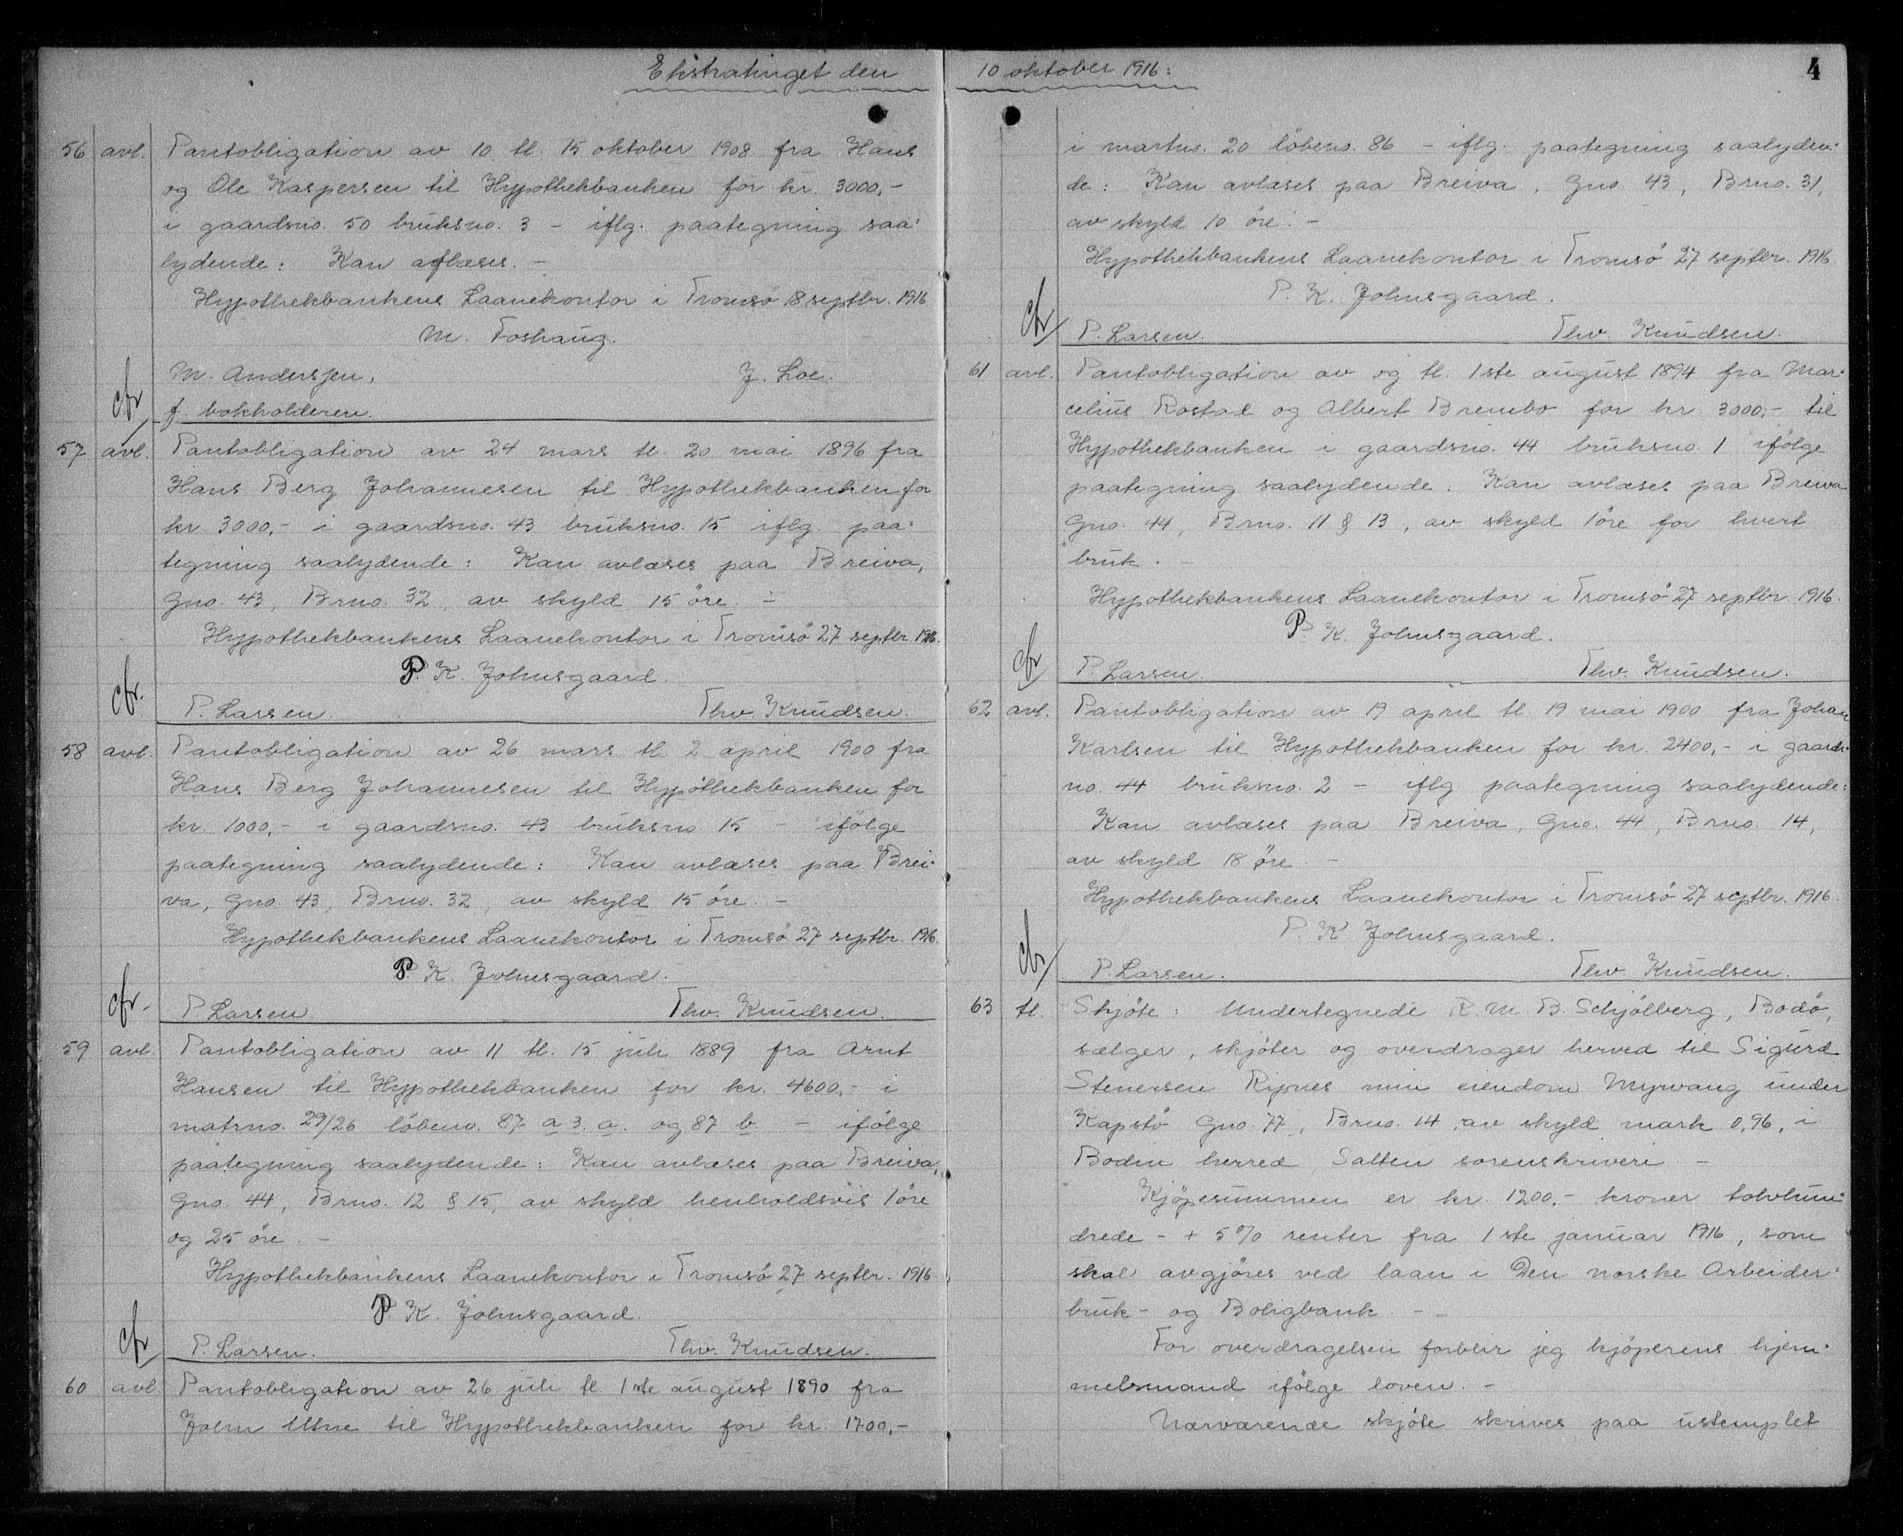 Ekstratinget den 10 oktober 1916:
4
56 avl. Pantobligation av 10 tl. 15 oktober 1908 fra Hans
og Ole Kaspersen til Hypothekbanken for kr. 3000,-
i gaardsno. 50 bruksno. 3 - iflg. paategning saa:
lydende: Kan aflæses. -
Hypothekbankens Laanekontor i Tromsö 18 septbr. 1916
M. Foshaug.
M. Anderssen, J. Loe.
cfr f. bokholderen.
57 avl. Pantobligation av 24 mars tl. 20 mai 1896 fra
Hans Berg Johannesen til Hypothekbanken for
kr. 3000,- i gaardsno. 43 bruksno. 15 iflg. paa:
tegning saalydende: Kan avlæses paa Breiva,
Gno. 43, Brno. 32, av skyld 15 öre. -
Hypothekbankens Laanekontor i Tromsö 27 septbr. 1916.
P. K. Johnsgaard.
cfr. P. Larsen. Thv. Knudsen.
58 avl. Pantobligation av 26 mars tl. 2 april 1900 fra
Hans Berg Johannesen til Hypothekbanken for
kr. 1000,- i gaardsno. 43 bruksno. 15 - ifölge
paategning saalydende: Kan avlæses paa Brei:
va, Gno. 43, Brno. 32, av skyld 15 öre. -
Hypothekbankens Laanekontor i Tromsö 27 septbr. 1916.
P. K. Johnsgaard.
cfr. P. Larsen. Thv. Knudsen.
59 avl. Pantobligation av 11 tl. 15 juli 1889 fra Arnt
Hansen til Hypothekbanken for kr. 4600,- i
matrno. 29/26 löbeno. 87 a 3. a. og 87 b. - ifölge
paategning saalydende: Kan avlæses paa Breiva,
Gno. 44, Brno. 12 & 15, av skyld henholdsvis 1 öre
og 25 öre. -
Hypothekbankens Laanekontor i Tromsö 27 septbr. 1916.
P. K. Johnsgaard.
cfr P. Larsen. Thv. Knudsen.
60 avl Pantobligation av 26 juli tl 1ste august 1890 fra
John Utne til Hypothekbanken for kr. 1700,-
i martno. 20 löbeno. 86 - iflg. paategning saalyden:
de: Kan avlæses paa Breiva, Gno. 43, Brno. 31,
av skyld 10 öre. -
Hypothekbankens Laanekontor i Tromsö 27 septbr. 1916.
P. K. Johnsgaard.
cfr P. Larsen. Thv. Knudsen.
61 avl. Pantobligation av og tl. 1ste august 1894 fra Mar:
celius Rostad og Albert Brembo for kr. 3000,- til
Hypothekbanken i gaardsno. 44 bruksno. 1 ifölge
paategning saalydende: Kan avlæses paa Breiva
Gno. 44, Brno. 11 & 13, av skyld 1öre for hvert
bruk. -
Hypothekbankens Laanekontor i Tromsö 27 septbr. 1916.
P. K. Johnsgaard.
cfr P. Larsen. Thv. Knudsen.
62 avl. Pantobligation av 19 april tl. 19 mai 1900 fra Johan
Karlsen til Hypothekbanken for kr. 2400,- i gaards:
no. 44 bruksno. 2 - iflg paategning saalydende:
Kan avlæses paa Breiva, Gno. 44, Brno. 14,
av skyld 18 öre. -
Hypothekbankens Laanekontor i Tromsö 27 septbr. 1916.
P. K. Johnsgaard.
cfr P. Larsen. Thv Knudsen.
63 tl. Skjöte: Undertegnede R. M. B. Schjölberg, Bodö,
sælger, skjöter og overdrager herved til Sigurd
Stenersen Ripnes min eiendom Myrvang under
Kapstö Gno. 77, Brno. 14, av skyld mark 0,96, i
Bodin herred Salten sorenskriveri -
Kjöpesummen er kr. 1200,- kroner tolvhun:
drede - + 5% renter fra 1ste januar 1916, som
skal avgjöres ved laan i Den norske Arbeider:
bruk- og Boligbank. - -
For overdragelsen forblir jeg kjöperens hjem:
melsmand ifölge loven. -
Nærværende skjöte skrives paa ustemplet